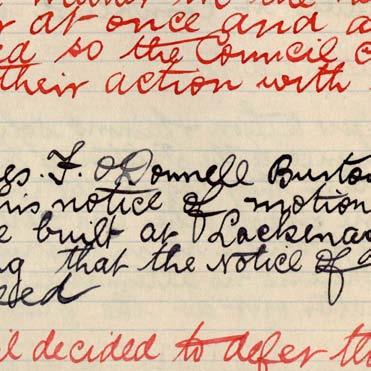 at once and a
so the Council c
their action with
es. F. O'Donnell Burto
his notice of motion
e built at Lackena
g that the Notice of a
eed
il decided to defer th